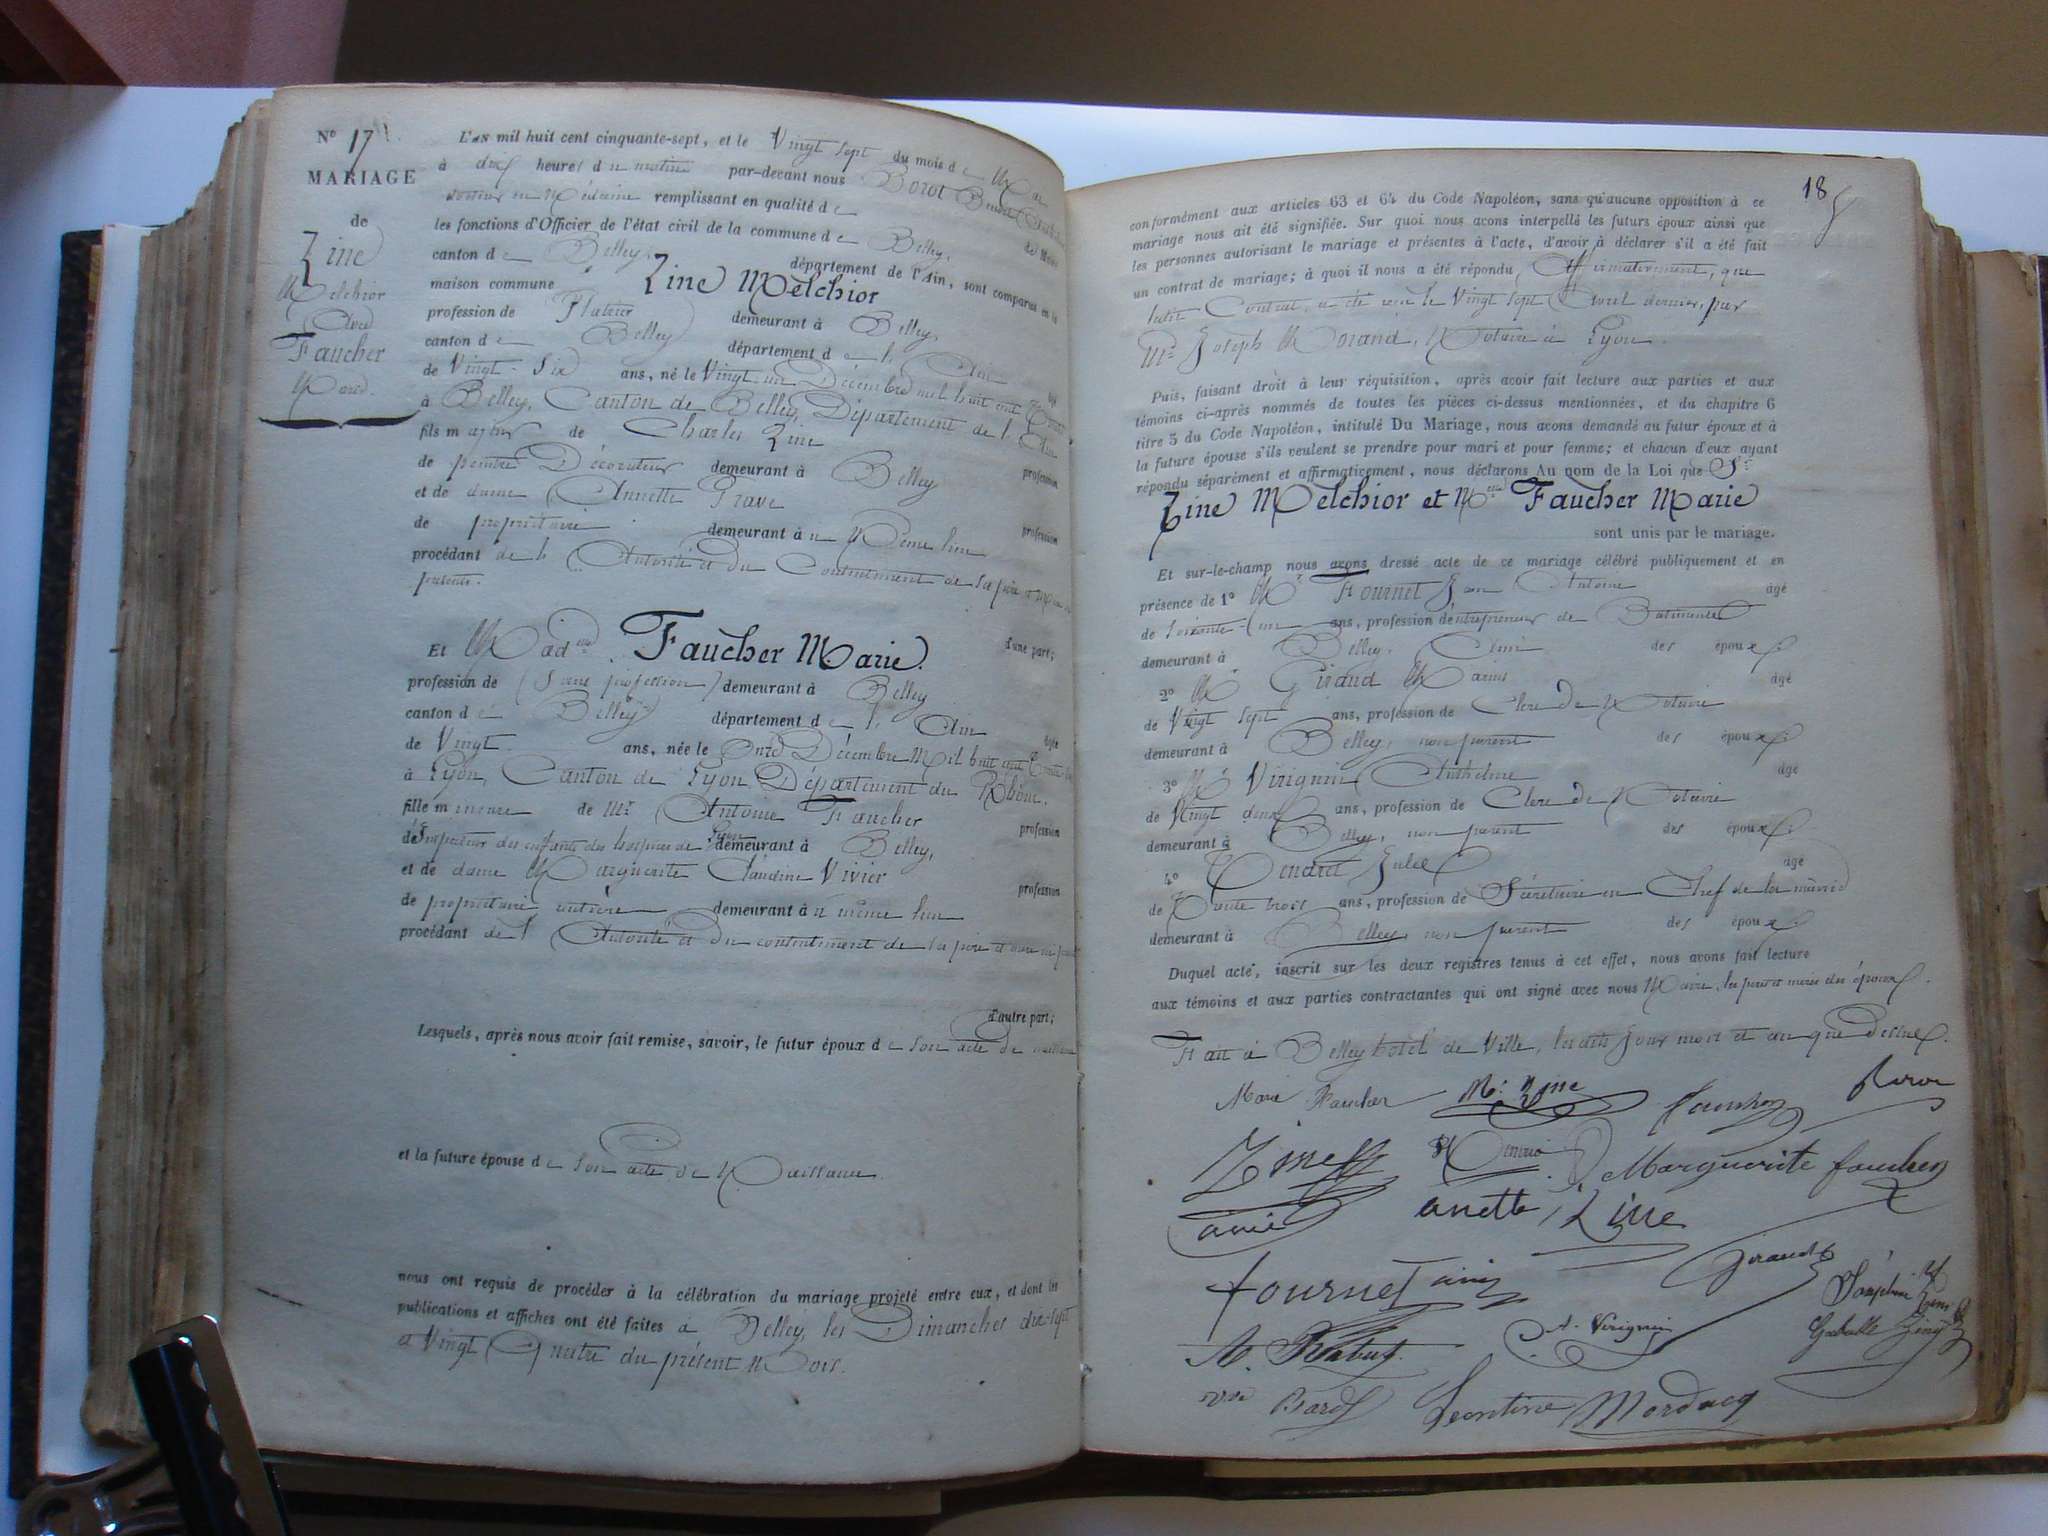 N° 17
MARIAGE
de
Zine
Melchior
Avec
Faucher
Marie.
L'AN mil huit cent cinquante-sept, et le Vingt sept du mois de Mai
à dix heures du matin par-devant nous Borot
docteur en Médecine remplissant en qualité de
les fonctions d'Officier de l'état civil de la commune de Belley,
canton de Belley, département de l'Ain, sont comparus en la
maison commune Zine Melchior
profession de Platrier demeurant à Belley,
canton de Belley département de l'Ain
de Vingt-Six ans, né le Vingt un Décembre mil huit cent Trente
à Belley, Canton de Belley, Département de l'Ain
fils majeur de Charles Zine profession
de peintre Décorateur demeurant à Belley
et de dame Annette Trave profession
de propriétaire demeurant à u Même lieu
procédant de l'Autorité et du Consentement de ses père et mère ici
présents. d'une part;
Et Madelle Faucher Marie.
profession de (Sans profession) demeurant à Belley
canton de Belley département de l'Ain âgée
de Vingt ans, née le Onze Décembre Mil huit cent Trente
à Lyon, Canton de Lyon Département du Rhône.
fille mineure de Mr Antoine Faucher profession
d'Inspecteur des enfants des hospices de Lyon demeurant à Belley,
et de dame Marguerite Claudine Vivier profession
de propriétaire rentière demeurant à u même lieu
procédant de l'Autorité et du consentement de ses père et mère
d'autre part;
Lesquels, après nous avoir fait remise, savoir, le futur époux de son acte de naissance
et la future épouse de son acte de Naissance.
nous ont requis de procéder à la célébration du mariage projeté entre eux, et dont les
publications et affiches ont été faites à Belley, les Dimanches dix-sept
et Vingt Quatre du présent Mois.
18
conformément aux articles 63 et 64 du Code Napoléon, sans qu'aucune opposition à ce
mariage nous ait été signifiée. Sur quoi nous avons interpellé les futurs époux ainsi que
les personnes autorisant le mariage et présentes à l'acte, d'avoir à déclarer s'il a été fait
un contrat de mariage; à quoi il nous a été répondu, Affirmativement, que
ledit Contrat, a été reçu le Vingt sept Avril dernier, par
Me Joseph Morand, Notaire à Lyon.
Puis, faisant droit à leur réquisition, après avoir fait lecture aux parties et aux
témoins ci-après nommés de toutes les pièces ci-dessus mentionnées, et du chapitre 6
titre 5 du Code Napoléon, intitulé Du Mariage, nous avons demandé au futur époux et à
la future épouse s'ils veulent se prendre pour mari et pour femme; et chacun d'eux ayant
répondu séparément et affirmativement, nous déclarons Au nom de la Loi que Sr
Zine Melchior et Melle Faucher Marie
sont unis par le mariage.
Et sur-le-champ nous avons dressé acte de ce mariage célébré publiquement et en
présence de 1° Mr Fournet Jean Antoine âgé
de soixante-un ans, profession d'entrepreneur de Batiments
demeurant à Belley, Ami des époux.
2° Mr Giraud Marius âgé
de Vingt sept ans, profession de Clerc de Notaire
demeurant à Belley, non parent des époux.
3° Mr Virignin Anthelme âgé
de Vingt deux ans, profession de Clerc de Notaire
demeurant à Belley, non parent des époux.
4° Jules âgé
de Trente trois ans, profession de Sécretaire en Chef de la mairie
demeurant à Belley, non parent des époux.
Duquel acte, inscrit sur les deux registres tenus à cet effet, nous avons fait lecture
aux témoins et aux parties contractantes qui ont signé avec nous Maire, les pères et mères des époux.
Fait à Belley hôtel de Ville, lesdits Jour mois et an que Dessus.
Marie Faucher M. Zine Faucher
Zine Marguerite faucher
anette Zine
fournet ainé Giraud
A. Virignin
Léontine